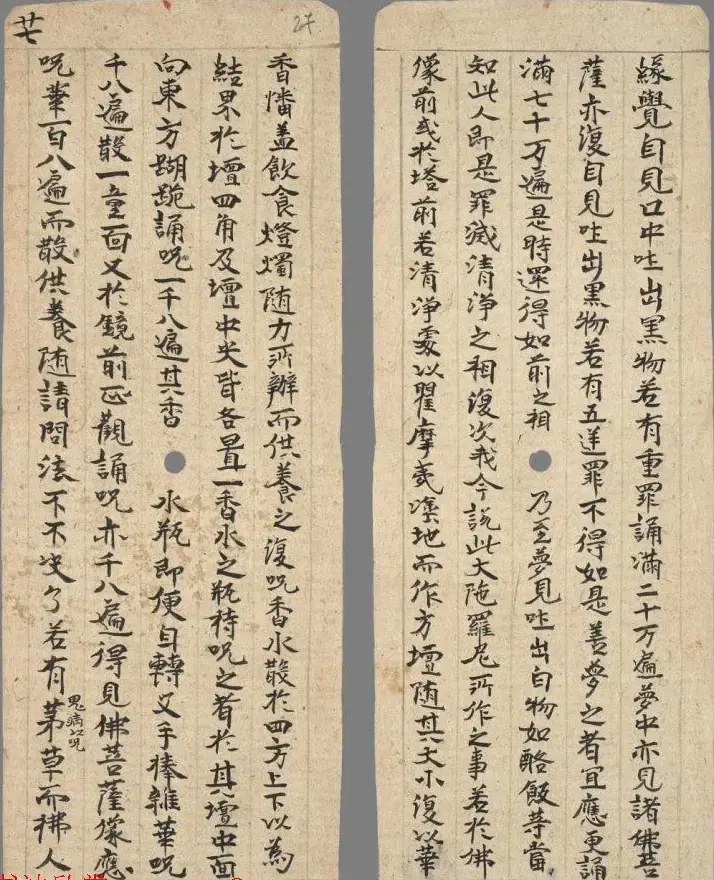 緣覺自見口中吐出黑物若有重罪誦滿二十万遍夢中亦見諸佛菩
薩亦復自見吐出黑物若有五逆罪不得如是善夢之者宜應更誦
滿七十万遍是時還得如前之相乃至夢見吐出白物如酪飯等當
知此人即是罪滅清淨之相復次我今說此大陁羅尼所作之事若於佛
像前或於塔前若清淨處以瞿摩夷塗地而作方壇随其大小復以華
27
香幡盖飲食燈燭随力所辦而供養之復呪香水散於四方上下以為
結界於壇四角及壇中央皆各置一香水之瓶持呪之者於其壇中面
向東方蹋跪誦呪一千八遍其香水瓶即便自轉叉手捧雜華呪
千八遍散一童面又於鏡前正觀誦呪亦千八遍得見佛菩薩像應
呪華一百八遍而散供養随請問法不不决了若有茅草而拂人
鬼病以呪
廿七